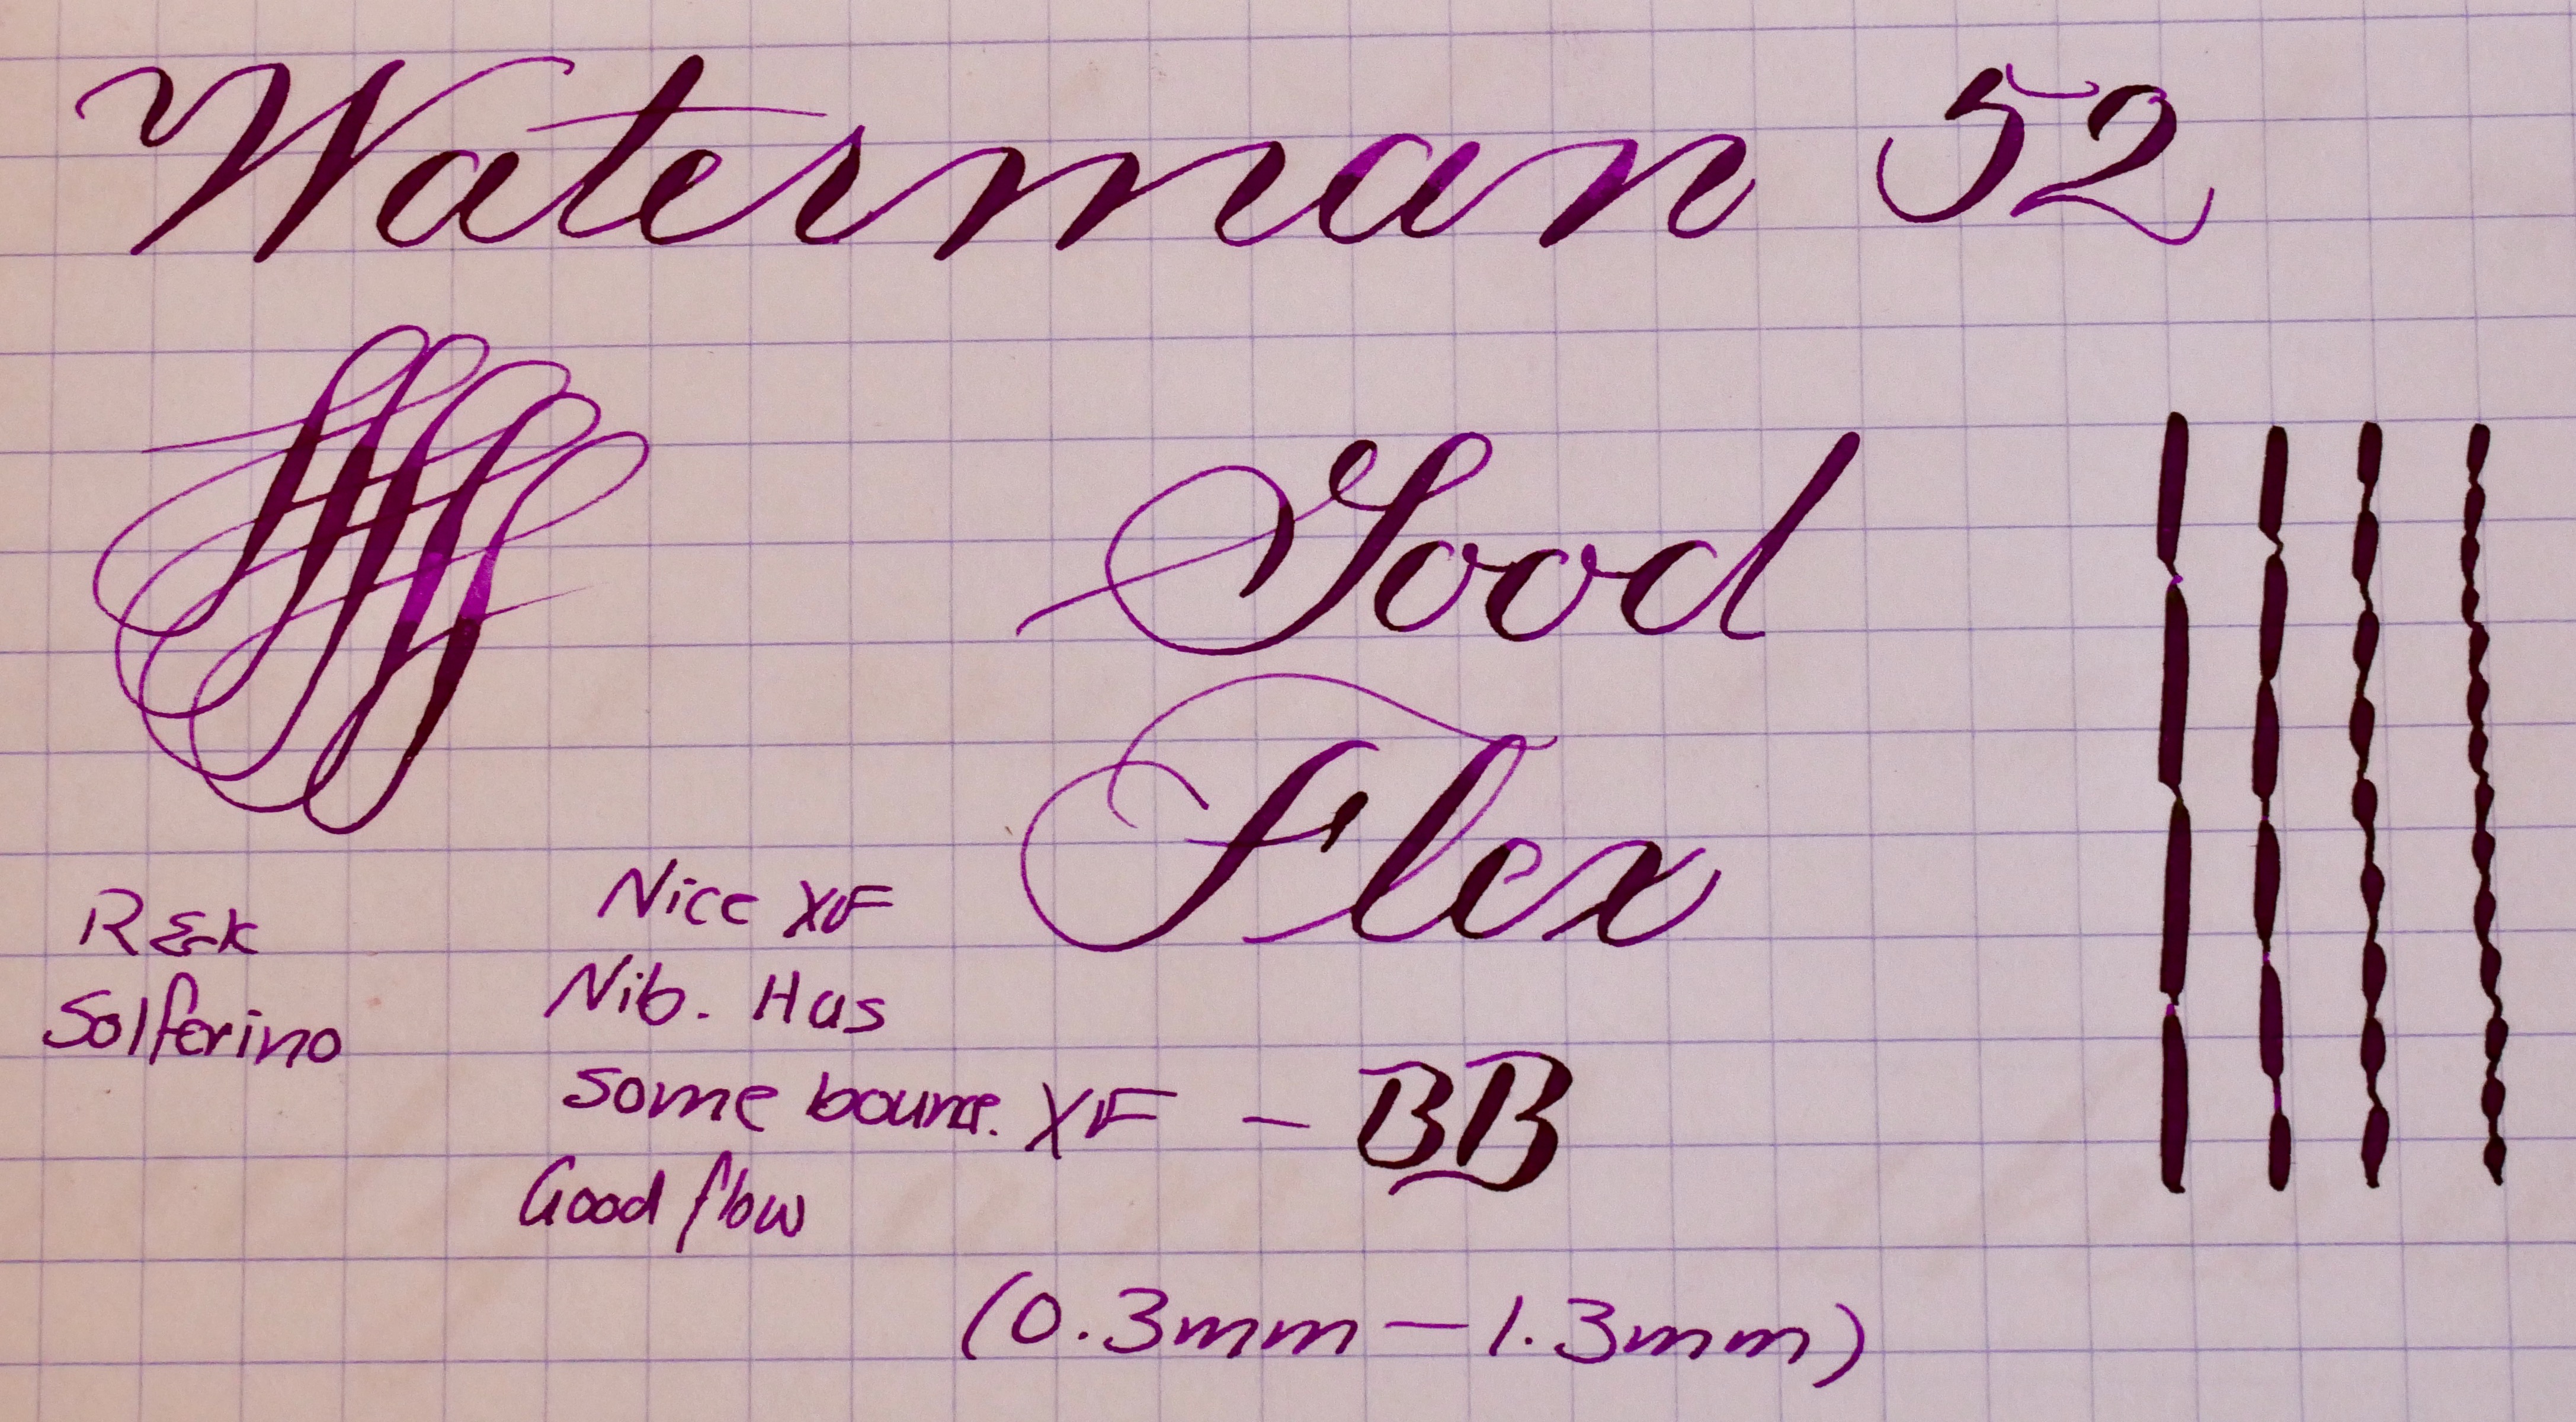 Waterman 52
Good
Flex
R&K
Solferino
Nice XF
Nib. Has
some bounce.
Good flow
XF – BB
(0.3mm – 1.3mm)